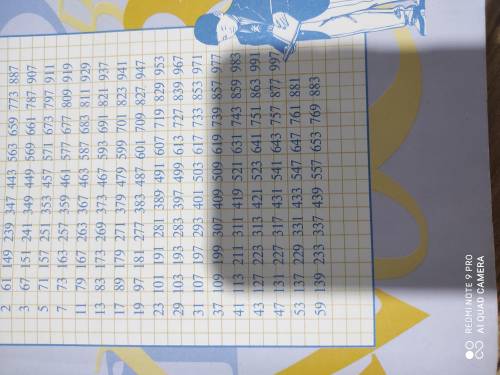 2 61 149 239 347 443 563 659 773 887
3 67 151 241 349 449 569 661 787 907
5 71 157 251 353 457 571 673 797 911
7 73 163 257 359 461 577 677 809 919
11 79 167 263 367 463 587 683 811 929
13 83 173 269 373 467 593 691 821 937
17 89 179 271 379 479 599 701 823 941
19 97 181 277 383 487 601 709 827 947
23 101 191 281 389 491 607 719 829 953
29 103 193 283 397 499 613 727 839 967
31 107 197 293 401 503 617 733 853 971
37 109 199 307 409 509 619 739 857 977
41 113 211 311 419 521 631 743 859 983
43 127 223 313 421 523 641 751 863 991
47 131 227 317 431 541 643 757 877 997
53 137 229 331 433 547 647 761 881
59 139 233 337 439 557 653 769 883
REDMI NOTE 9 PRO
AI QUAD CAMERA